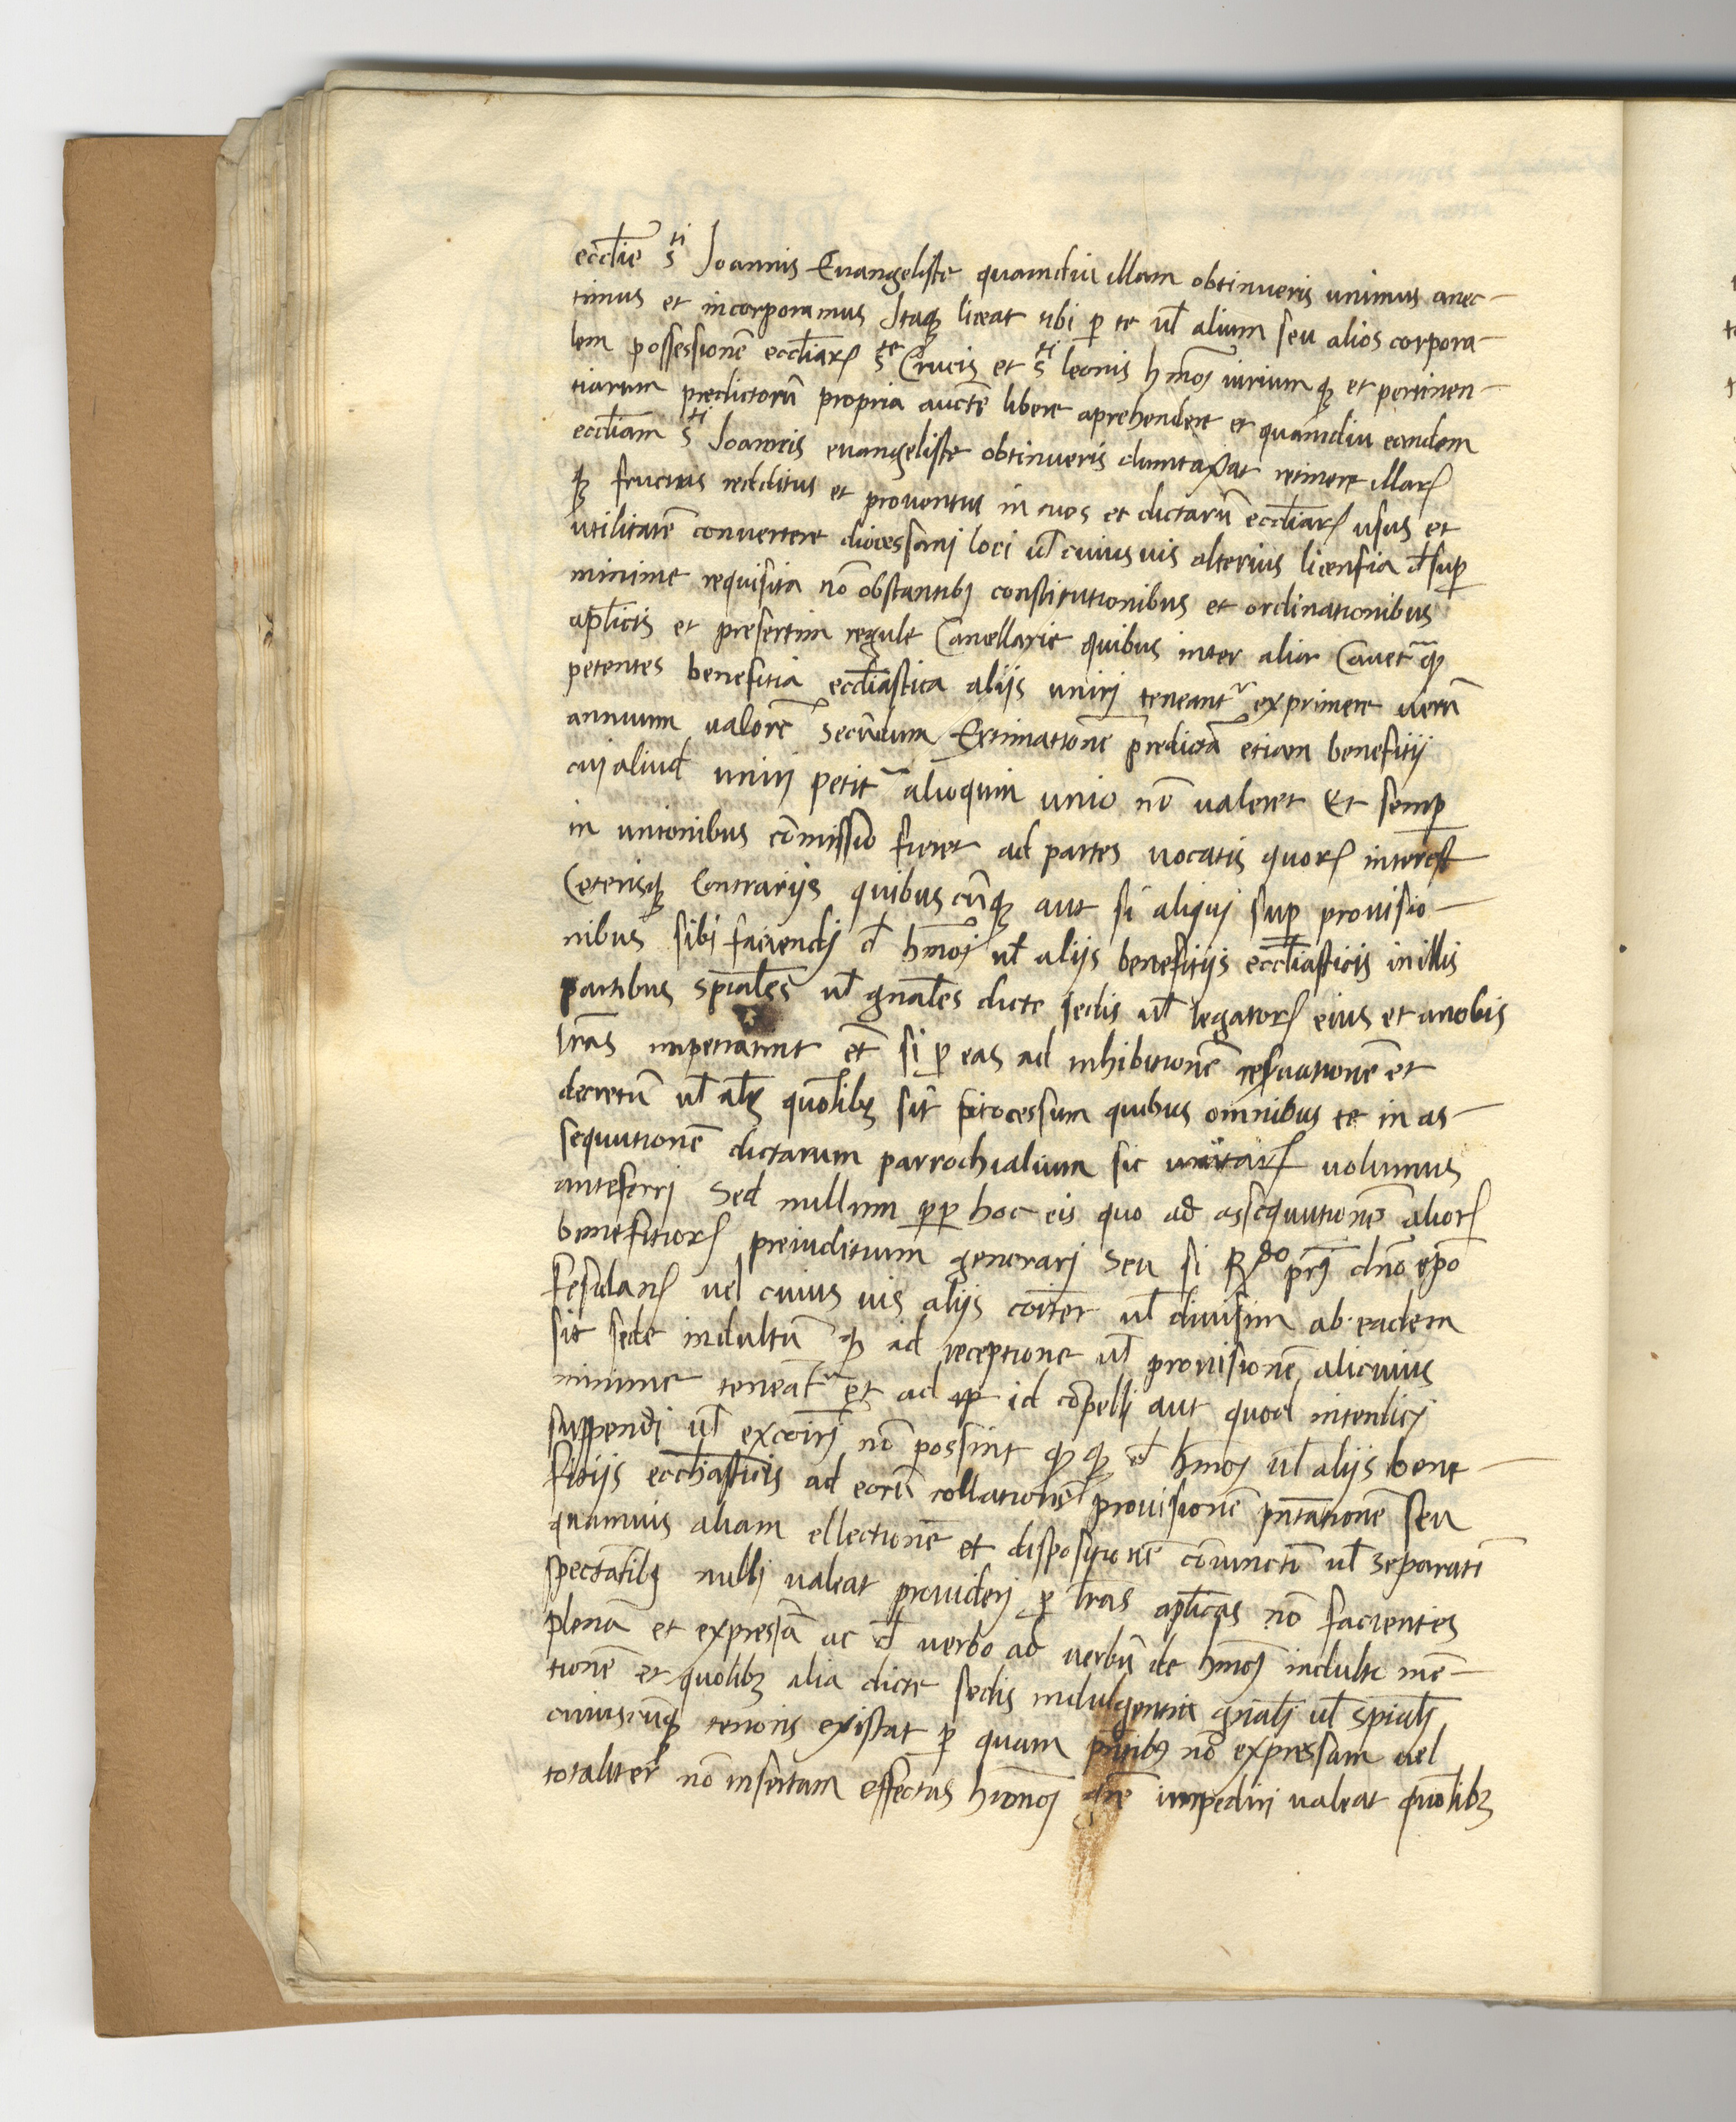 ecclīe sti Joannis Euangeliste quamdiu illam obtinueris unimus anec-
timus et incorporamus Itaqȝ liceat tibi ꝑ te ul̄ alium seu alios corpora-
lem possessionē eccliarꝝ ste Crucis et sti leonis hmōj iurium qȝ et pertinen-
tiarum predictorū propria auctē libere aprehendere et quamdiu eandem
eccliam sti Joannis euangeliste obtinueris dumtaxat retinere illarꝝ
qȝ fructus redditus et prouentus in tuos et dictarū eccliarꝝ usus et
utilitatē conuertere diocessanj loci ul̄ cuiusuis alterius licensia d̄ suꝑ
minime requisita nō obstantibȝ constitutionibus et ordinationibus
aplicis et presertim regule Cancellarie quibus inter alia Cauetr qȝ
petentes benefitia eccliastica aliis unirj teneantr exprimere uerū
annuum valorē secundum Extimationē predictā etiam benefitij
cuj aliud unirj petitr alioquin unio nō valeret Et semꝑ
in unionibus cōmissio fieret ad partes uocatis quorꝝ interest
Ceterisqȝ Contrarijs quibuscūqȝ aut si aliquj suꝑ prouisio-
nibus sibi faciendj d̄ hmōj ul̄ aliis benefitijs eccliasticis in illis
partibus sp̄iales ul̄ gn̄ales dicte sedis ul̄ legatorꝝ eius et a nobis
lr̄as impetrarint et̄ si ꝑ eas ad inhibitionē reseruationē et
decretū ul̄ al̄s quōlibȝ sit processum quibus omnibus te in as-
sequutionē dictarum parrochialium sic unitarꝝ uolumus
anteferrj Sed nullum ꝓꝑ hoc eis quo ad assequutionē aliorꝝ
benefitiorꝝ preiuditium generarj Seu si Rdo prj dn̄o ep̄o
fesulanꝝ vel cuius uis aliis cōiter ul̄ diuisim ab eadem
sit sede indultū qȝ ad receptione ul̄ prouisionē alicuius
minime teneatr et ad id cōpellj aut quod interdicj
suspendi ul̄ excōirj nō possint qȝ qȝ d̄ hmōj ul̄ aliis bene-
fitijs eccliasticis ad eorū collationē prouisionē pn̄tationē seu
quamuis aliam ellectionē et dispositionē coniunctī ul̄ separatī
spectatibȝ nulli valeat prouiderj ꝑ lr̄as aplicas nō facientes
plenā et expressā ac d̄ uerbo ad uerbū de hmōj indulti mē-
tionē et quōlibȝ alia dicte sedis indulgentia gn̄alj ul̄ sp̄ialj
cuiuscūqȝ tenoris existat ꝑ quam pn̄tibȝ nō expressam uel
totaliter nō insertam effectus hmōj grē impediri valeat quōlibȝ